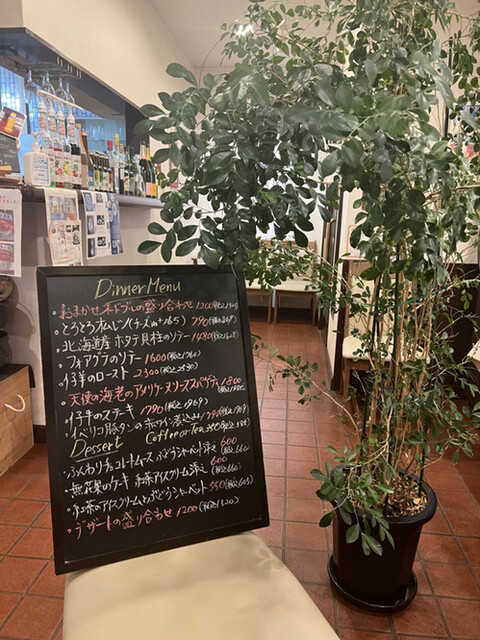 Dinner Menu
おまかせオードブルの盛り合わせ 1200(税込1320)
とろとろオムレツ(チーズin+165) 790(税込869)
北海道産 ホタテ貝柱のソテー 1480(税込1628)
フォアグラのソテー 1600(税込1760)
仔羊のロースト 2300(税込2530)
天使の海老のアメリケーヌソーススパゲティ 1800(税込1980)
仔牛のステーキ 1790(税込1969)
イベリコ豚タンの赤ワイン煮込み
Dessert Coffee or Tea 350(税込385)
ふんわりチョコレートムース ぶどうシャーベット添え 600(税込660)
無花果のケーキ 紅茶アイスクリーム添え 600(税込660)
紅茶のアイスクリームとぶどうシャーベット 550(税込605)
デザートの盛り合わせ 1200(税込1320)